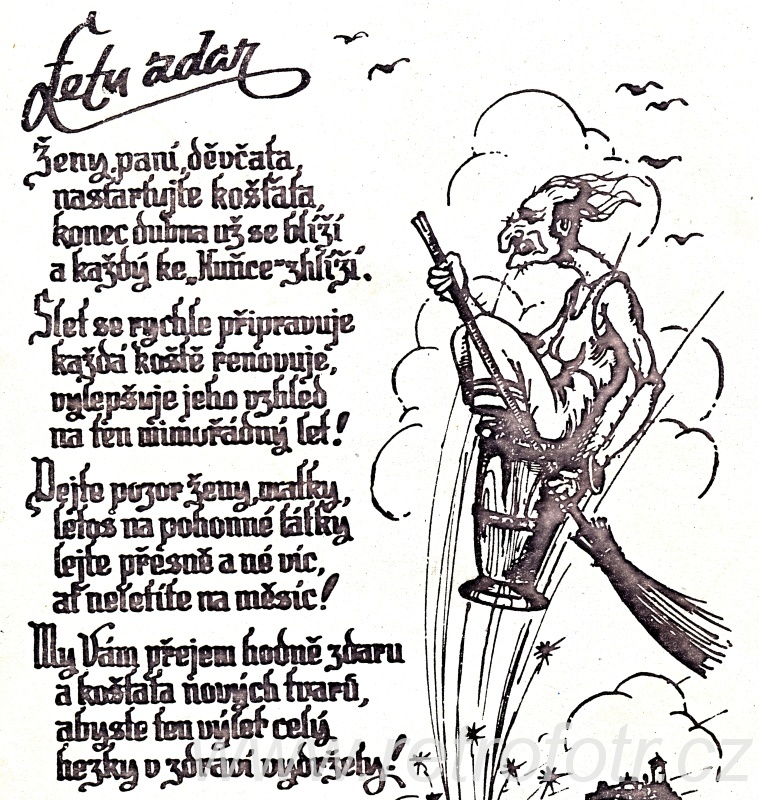 Letu zdar
Ženy, paní, děvčata,
nastartujte košťata,
konec dubna už se blíží
a každý ke „Huňce“ zhlíží.
Slet se rychle připravuje
každá koště renovuje,
vylepšuje jeho vzhled
na ten mimořádný let!
Dejte pozor ženy, matky,
letos na pohonné látky
lejte přesně a né víc,
ať neletíte na měsíc!
My Vám přejem hodně zdaru
a košťata nových tvarů,
abyste ten výlet celý
hezky v zdraví vydržely!
www.retrofotr.cz